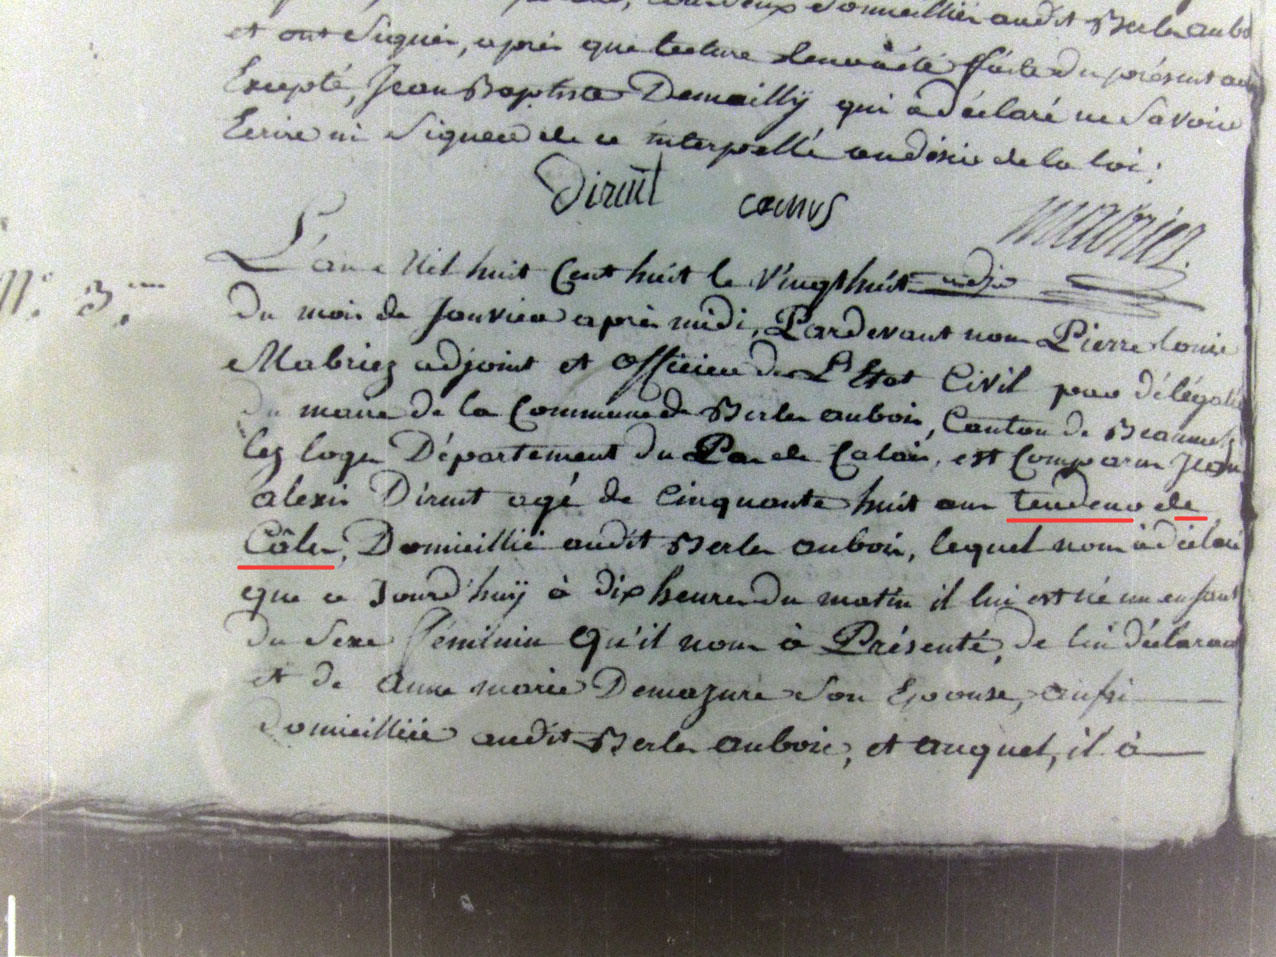 audit Berles aubois
et ont Signés, après que lecture leur a été faite du présent acte
Excepté, Jean Baptiste Demailly qui à déclaré ne Savoir
Ecrire ni Signer de ce interpellé au désir de la loi;
Diruit camus mabriez
N.° 3.
L'an Mil huit Cent huit le Vingt huit
du mois de Janvier après midi, Pardevant nous Pierre Louis
Mabriez adjoint et officier de L'Etat Civil par délégation
du maire de la Commune de Berles aubois, Canton de Beaumetz
lez loges Département du Pas de Calais, est Comparu Jean
alexis Diruit agé de Cinquante huit ans tendeur de
Côles, Domicillié audit Berles aubois, lequel nous à déclaré
que ce Jourd'huÿ à dix heures du matin il lui est né un enfant
du Sexe féminin Qu'il nous à Présenté, de lui déclarant
et de Anne marie Demazure Son Epouse, aussi
domicilliée audit Berles aubois, et auquel, il à